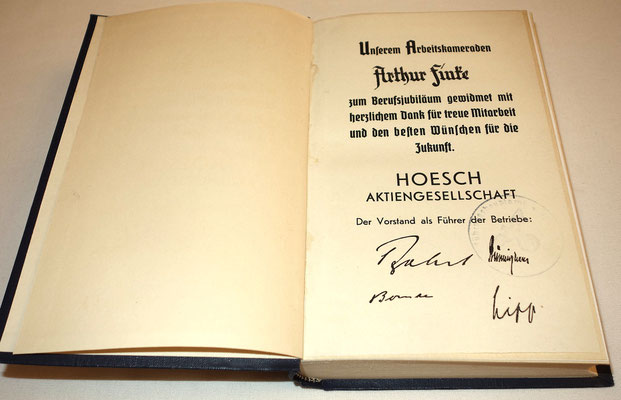 Unserem Arbeitskameraden
Arthur Finke
zum Berufsjubiläum gewidmet mit
herzlichem Dank für treue Mitarbeit
und den besten Wünschen für die
Zukunft.
HOESCH
AKTIENGESELLSCHAFT
Der Vorstand als Führer der Betriebe: